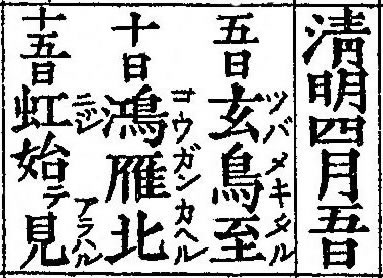 清明四月五日
五日
玄鳥至
ツバメキタル
十日
鴻雁北
コウガンカヘル
十五日
虹始テ見
ニジ アラハル